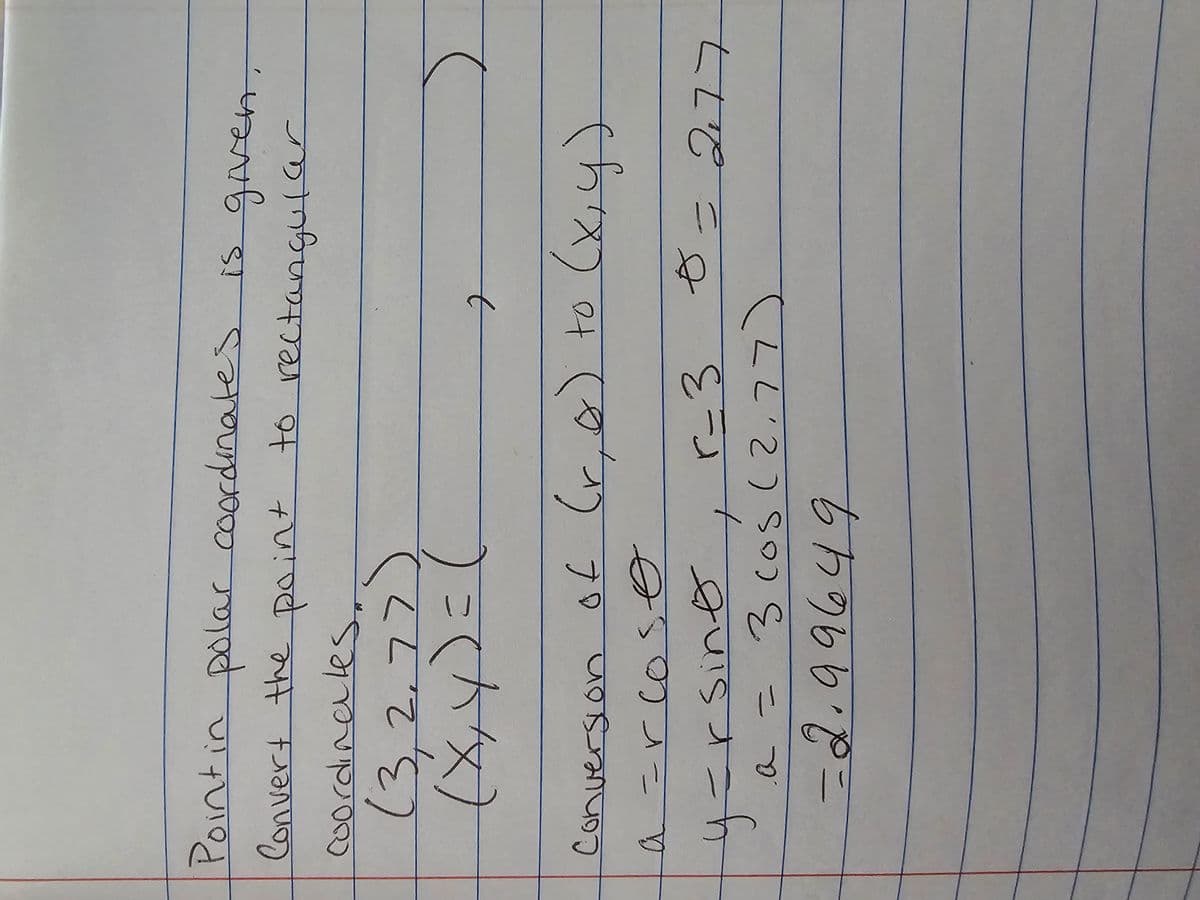 Point in polar coordinates is given.
Convert the point to rectangular
coordinates.
(3, 2.77)
(x,y) = ( , )
Conversion of (r,θ) to (x,y)
a = r cos θ
y = r sin θ, r=3 θ = 2.77
a = 3 cos(2.77)
= 2.99649